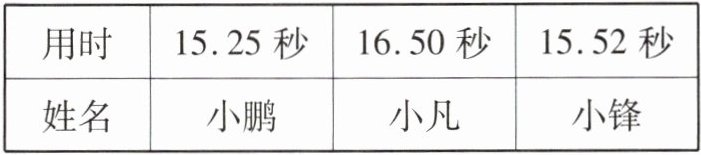 用时 15.25 秒 16.50 秒 15.52 秒
姓名 小鹏 小凡 小锋